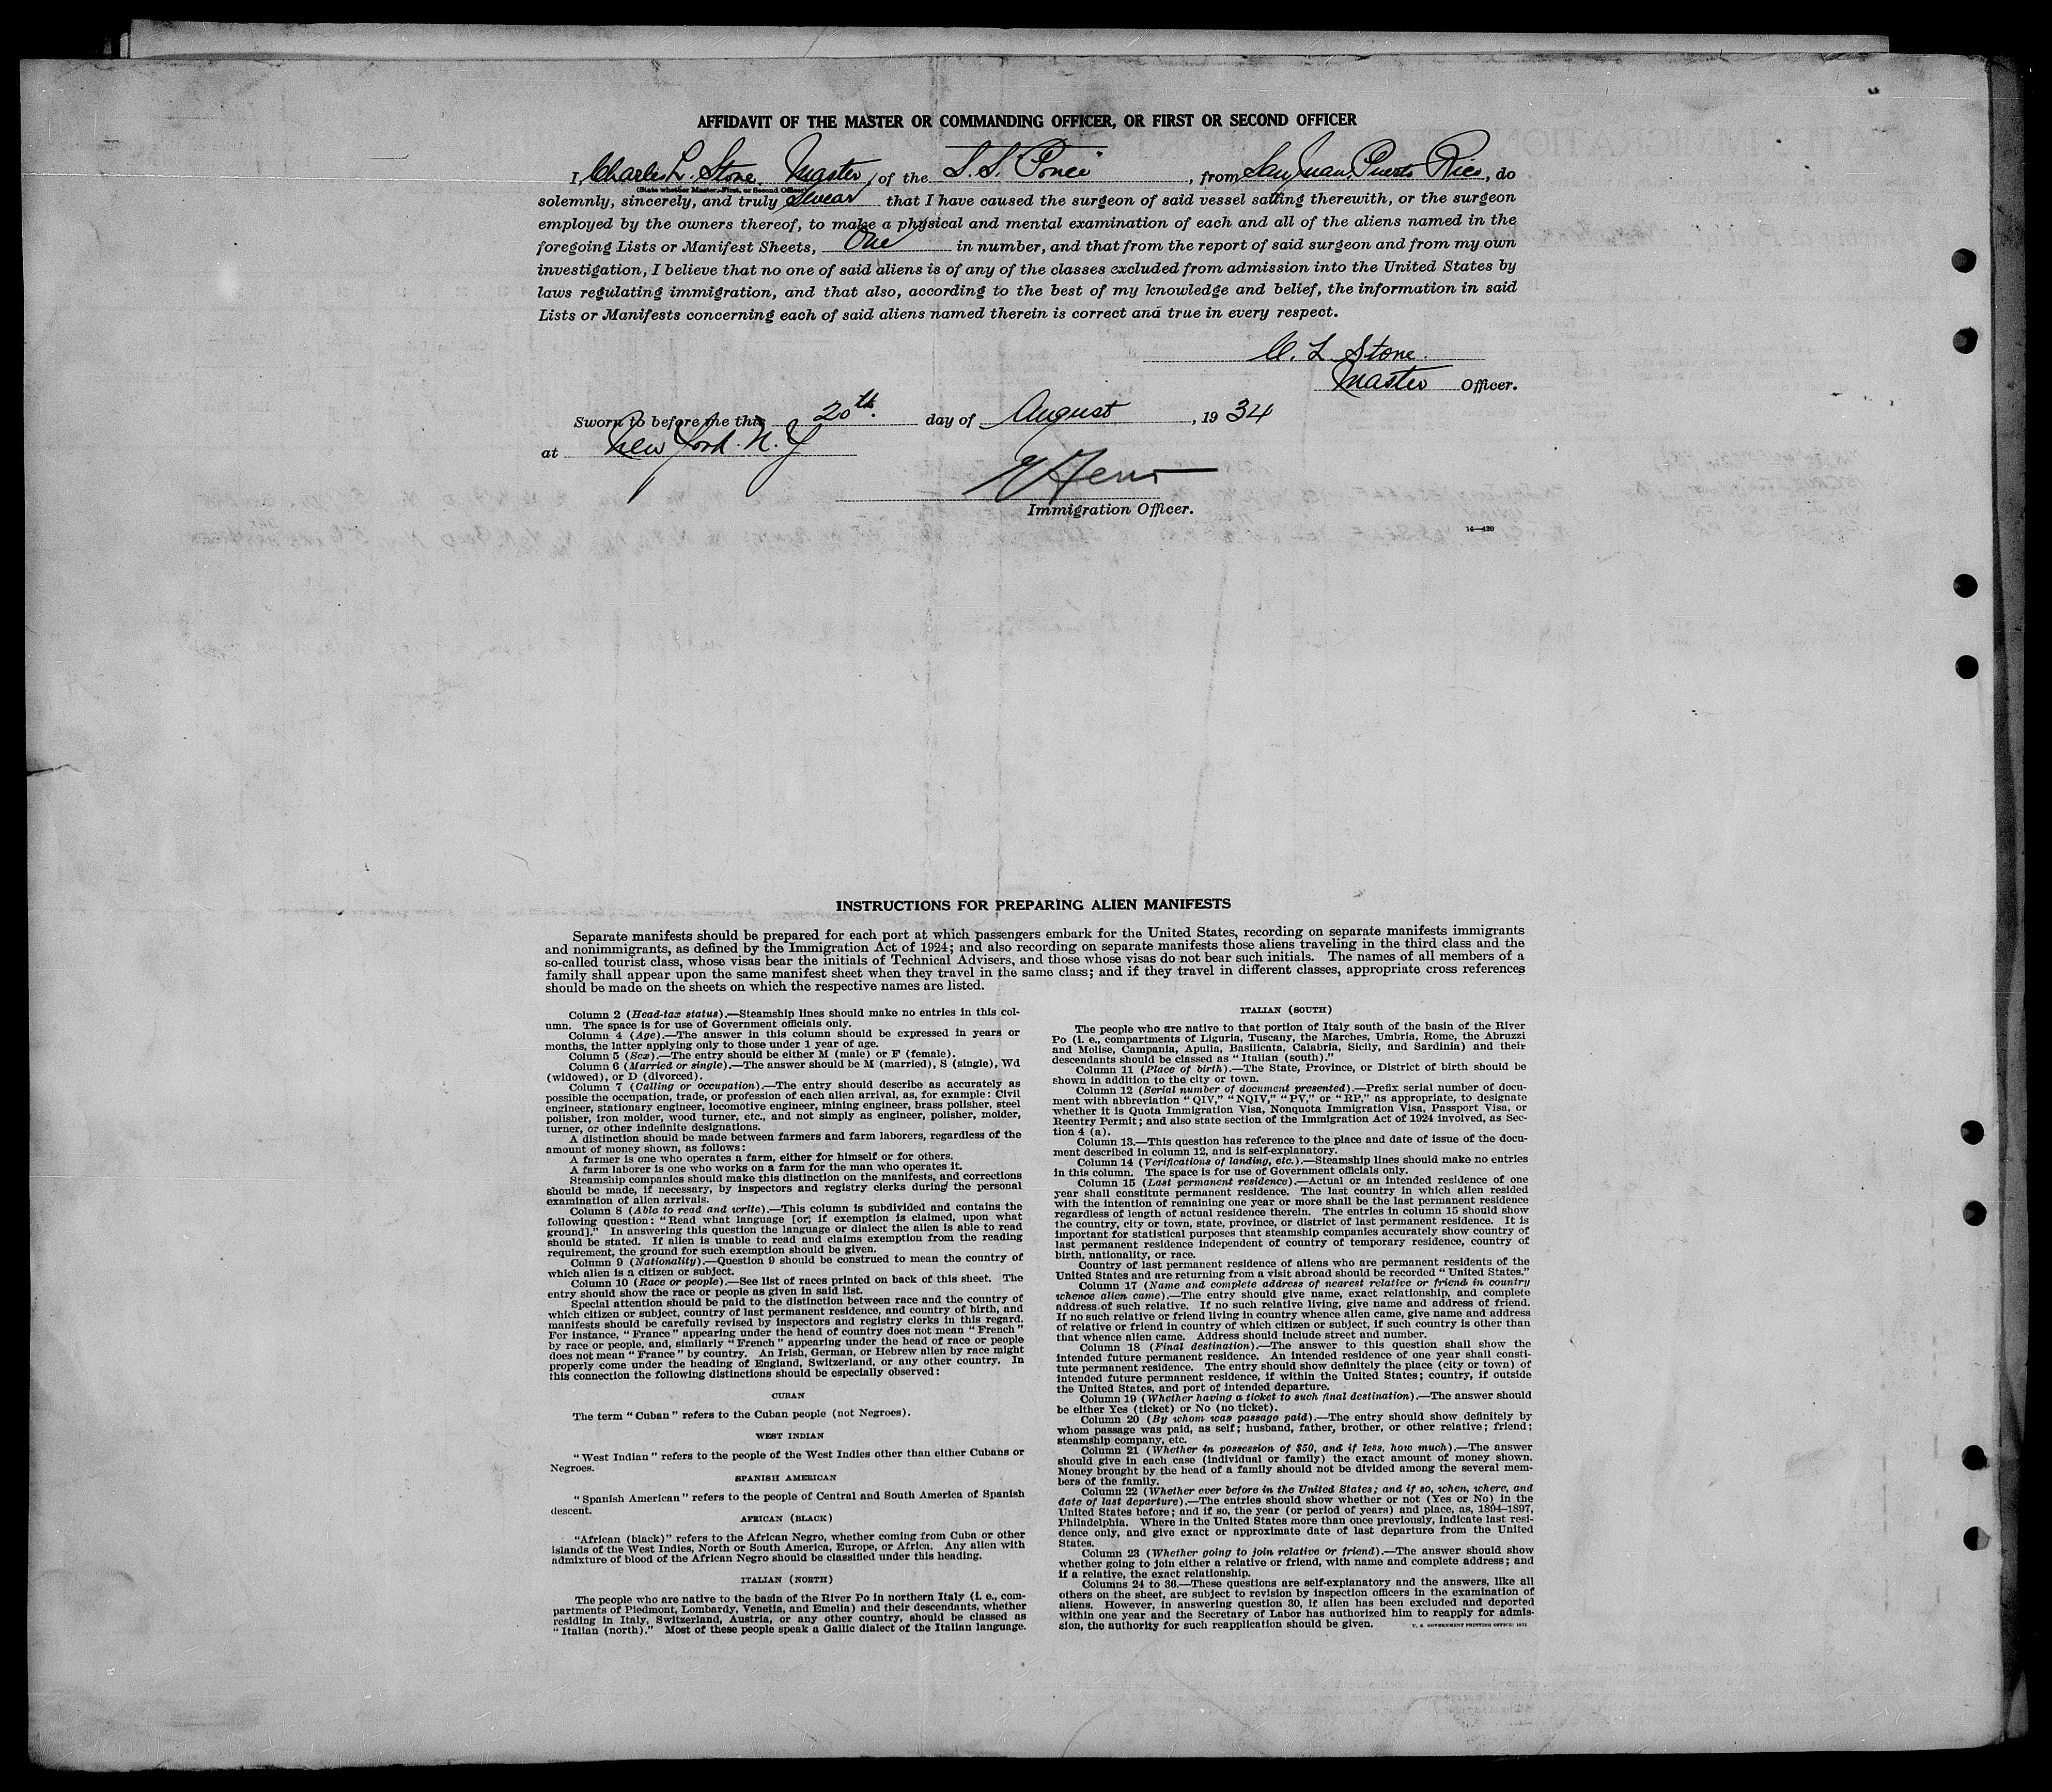 AFFIDAVIT OF THE MASTER OR COMMANDING OFFICER, OR FIRST OR SECOND OFFICER
I, Charles L. Stone, Master, of the S.S. "Ponce", from San Juan, Puerto Rico, do
(State whether Master, First, or Second Officer)
solemnly, sincerely, and truly swear that I have caused the surgeon of said vessel sailing therewith, or the surgeon
employed by the owners thereof, to make a physical and mental examination of each and all of the aliens named in the
foregoing Lists or Manifest Sheets, One in number, and that from the report of said surgeon and from my own
investigation, I believe that no one of said aliens is of any of the classes excluded from admission into the United States by
laws regulating immigration, and that also, according to the best of my knowledge and belief, the information in said
Lists or Manifests concerning each of said aliens named therein is correct and true in every respect.
C. L. Stone.
Master Officer.
Sworn to before me this 20th. day of August, 1934
at New York. N. Y
Immigration Officer.
14—430
INSTRUCTIONS FOR PREPARING ALIEN MANIFESTS
Separate manifests should be prepared for each port at which passengers embark for the United States, recording on separate manifests immigrants
and nonimmigrants, as defined by the Immigration Act of 1924; and also recording on separate manifests those aliens traveling in the third class and the
so-called tourist class, whose visas bear the initials of Technical Advisers, and those whose visas do not bear such initials. The names of all members of a
family shall appear upon the same manifest sheet when they travel in the same class; and if they travel in different classes, appropriate cross references
should be made on the sheets on which the respective names are listed.
Column 2 (Head-tax status).—Steamship lines should make no entries in this col-
umn. The space is for use of Government officials only.
Column 4 (Age).—The answer in this column should be expressed in years or
months, the latter applying only to those under 1 year of age.
Column 5 (Sex).—The entry should be either M (male) or F (female).
Column 6 (Married or single).—The answer should be M (married), S (single), Wd
(widowed), or D (divorced).
Column 7 (Calling or occupation).—The entry should describe as accurately as
possible the occupation, trade, or profession of each alien arrival, as, for example: Civil
engineer, stationary engineer, locomotive engineer, mining engineer, brass polisher, steel
polisher, iron molder, wood turner, etc., and not simply as engineer, polisher, molder,
turner, or other indefinite designations.
A distinction should be made between farmers and farm laborers, regardless of the
amount of money shown, as follows:
A farmer is one who operates a farm, either for himself or for others.
A farm laborer is one who works on a farm for the man who operates it.
Steamship companies should make this distinction on the manifests, and corrections
should be made, if necessary, by inspectors and registry clerks during the personal
examination of alien arrivals.
Column 8 (Able to read and write).—This column is subdivided and contains the
following question: "Read what language [or, if exemption is claimed, upon what
ground]." In answering this question the language or dialect the alien is able to read
should be stated. If alien is unable to read and claims exemption from the reading
requirement, the ground for such exemption should be given.
Column 9 (Nationality).—Question 9 should be construed to mean the country of
which alien is a citizen or subject.
Column 10 (Race or people).—See list of races printed on back of this sheet. The
entry should show the race or people as given in said list.
Special attention should be paid to the distinction between race and the country of
which citizen or subject, country of last permanent residence, and country of birth, and
manifests should be carefully revised by inspectors and registry clerks in this regard.
For instance, "France" appearing under the head of country does not mean "French"
by race or people, and, similarly "French" appearing under the head of race or people
does not mean "France" by country. An Irish, German, or Hebrew alien by race might
properly come under the heading of England, Switzerland, or any other country. In
this connection the following distinctions should be especially observed:
CUBAN
The term "Cuban" refers to the Cuban people (not Negroes).
WEST INDIAN
"West Indian" refers to the people of the West Indies other than either Cubans or
Negroes.
SPANISH AMERICAN
"Spanish American" refers to the people of Central and South America of Spanish
descent.
AFRICAN (BLACK)
"African (black)" refers to the African Negro, whether coming from Cuba or other
islands of the West Indies, North or South America, Europe, or Africa. Any alien with
admixture of blood of the African Negro should be classified under this heading.
ITALIAN (NORTH)
The people who are native to the basin of the River Po in northern Italy (i. e., com-
partments of Piedmont, Lombardy, Venetia, and Emelia) and their descendants, whether
residing in Italy, Switzerland, Austria, or any other country, should be classed as
"Italian (north)." Most of these people speak a Gallic dialect of the Italian language.
ITALIAN (SOUTH)
The people who are native to that portion of Italy south of the basin of the River
Po (i. e., compartments of Liguria, Tuscany, the Marches, Umbria, Rome, the Abruzzi
and Molise, Campania, Apulia, Basilicata, Calabria, Sicily, and Sardinia) and their
descendants should be classed as "Italian (south)."
Column 11 (Place of birth).—The State, Province, or District of birth should be
shown in addition to the city or town.
Column 12 (Serial number of document presented).—Prefix serial number of docu-
ment with abbreviation "QIV," "NQIV," "PV," or "RP," as appropriate, to designate
whether it is Quota Immigration Visa, Nonquota Immigration Visa, Passport Visa, or
Reentry Permit; and also state section of the Immigration Act of 1924 involved, as Sec-
tion 4 (a).
Column 13.—This question has reference to the place and date of issue of the docu-
ment described in column 12, and is self-explanatory.
Column 14 (Verifications of landing, etc.).—Steamship lines should make no entries
in this column. The space is for use of Government officials only.
Column 15 (Last permanent residence).—Actual or an intended residence of one
year shall constitute permanent residence. The last country in which alien resided
with the intention of remaining one year or more shall be the last permanent residence
regardless of length of actual residence therein. The entries in column 15 should show
the country, city or town, state, province, or district of last permanent residence. It is
important for statistical purposes that steamship companies accurately show country of
last permanent residence independent of country of temporary residence, country of
birth, nationality, or race.
Country of last permanent residence of aliens who are permanent residents of the
United States and are returning from a visit abroad should be recorded "United States."
Column 17 (Name and complete address of nearest relative or friend in country
whence alien came).—The entry should give name, exact relationship, and complete
address of such relative. If no such relative living, give name and address of friend.
If no such relative or friend living in country whence alien came, give name and address
of relative or friend in country of which citizen or subject, if such country is other than
that whence alien came. Address should include street and number.
Column 18 (Final destination).—The answer to this question shall show the
intended future permanent residence. An intended residence of one year shall consti-
tute permanent residence. The entry should show definitely the place (city or town) of
intended future permanent residence, if within the United States; country, if outside
the United States, and port of intended departure.
Column 19 (Whether having a ticket to such final destination).—The answer should
be either Yes (ticket) or No (no ticket).
Column 20 (By whom was passage paid).—The entry should show definitely by
whom passage was paid, as self; husband, father, brother, or other relative; friend;
steamship company, etc.
Column 21 (Whether in possession of $50, and if less, how much).—The answer
should give in each case (individual or family) the exact amount of money shown.
Money brought by the head of a family should not be divided among the several mem-
bers of the family.
Column 22 (Whether ever before in the United States; and if so, when, where, and
date of last departure).—The entries should show whether or not (Yes or No) in the
United States before; and if so, the year (or period of years) and place, as, 1894-1897,
Philadelphia. Where in the United States more than once previously, indicate last resi-
dence only, and give exact or approximate date of last departure from the United
States.
Column 23 (Whether going to join relative or friend).—The answer should show
whether going to join either a relative or friend, with name and complete address; and
if a relative, the exact relationship.
Columns 24 to 36.—These questions are self-explanatory and the answers, like all
others on the sheet, are subject to revision by inspection officers in the examination of
aliens. However, in answering question 30, if alien has been excluded and deported
within one year and the Secretary of Labor has authorized him to reapply for admis-
sion, the authority for such reapplication should be given.
U. S. GOVERNMENT PRINTING OFFICE: